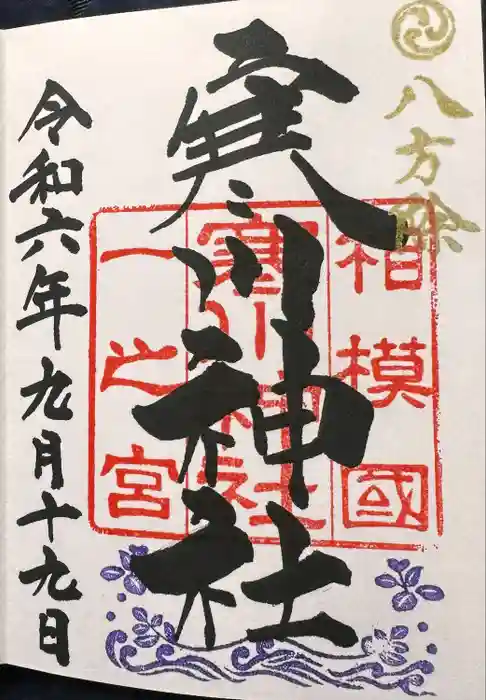 八方除
相模國
寒川神社
一之宮
寒川神社
令和六年九月十九日